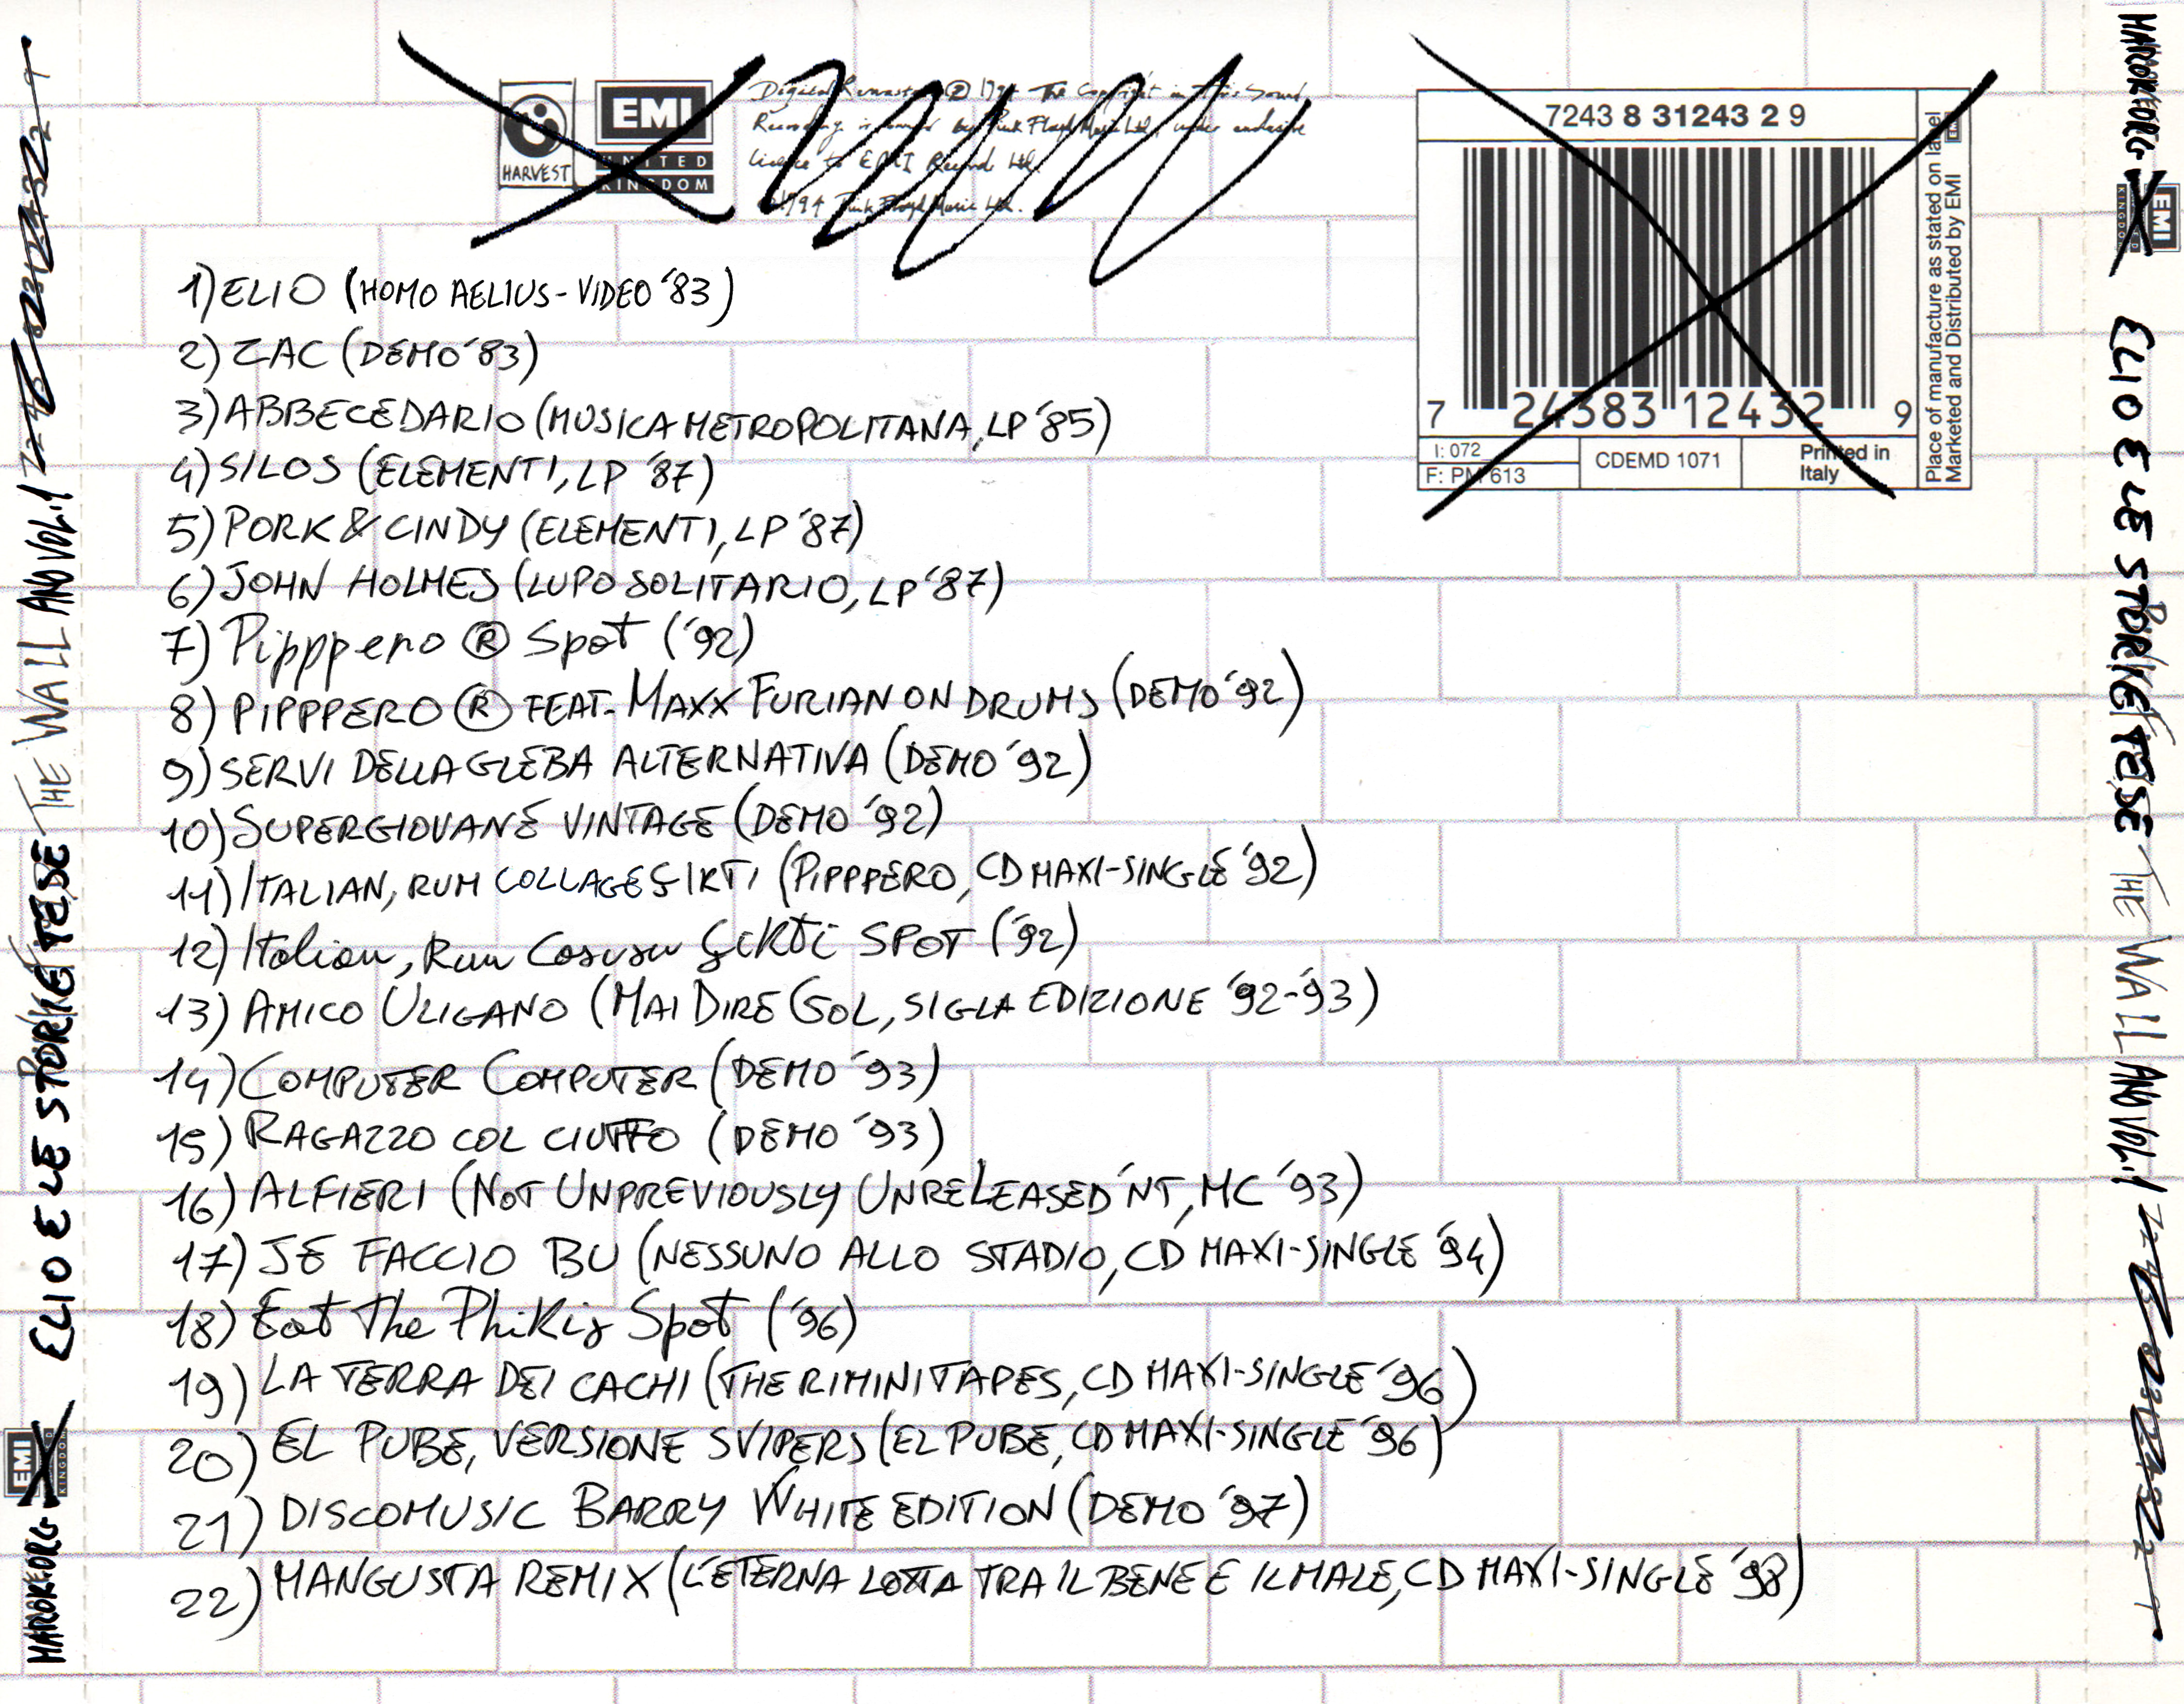 HARVEST
EMI
UNITED
KINGDOM
Digital Remaster ℗ 1994 The Copyright in this Sound
Recording is owned by Pink Floyd Music Ltd. under exclusive
licence to EMI Records Ltd.
1994 Pink Floyd Music Ltd.
7243 8 31243 2 9
7 24383 12432 9
I: 072
F: PM 613
CDEMD 1071
Printed in
Italy
Place of manufacture as stated on label
Marketed and Distributed by EMI
EMI
1) ELIO (HOMO AELIUS - VIDEO '83)
2) ZAC (DEMO '83)
3) ABBECEDARIO (MUSICA METROPOLITANA, LP '85)
4) SILOS (ELEMENTI, LP '87)
5) PORK & CINDY (ELEMENTI, LP '87)
6) JOHN HOLMES (LUPO SOLITARIO, LP '87)
7) Pipppero ® Spot ('92)
8) PIPPPERO ® FEAT. MAXX FURIAN ON DRUMS (DEMO '92)
9) SERVI DELLA GLEBA ALTERNATIVA (DEMO '92)
10) SUPERGIOVANE VINTAGE (DEMO '92)
11) ITALIAN, RUM COLLAGE ÇIKTI (PIPPPERO, CD MAXI-SINGLE '92)
12) Italian, Rum Casusu Çikti SPOT ('92)
13) AMICO ULIGANO (MAI DIRE GOL, SIGLA EDIZIONE '92-'93)
14) COMPUTER COMPUTER (DEMO '93)
15) RAGAZZO COL CIUFFO (DEMO '93)
16) ALFIERI (NOT UNPREVIOUSLY UNRELEASED'NT, MC '93)
17) SE FACCIO BU (NESSUNO ALLO STADIO, CD MAXI-SINGLE '94)
18) Eat The Phikis Spot ('96)
19) LA TERRA DEI CACHI (THE RIMINI TAPES, CD MAXI-SINGLE '96)
20) EL PUBE, VERSIONE SVIPERS (EL PUBE, CD MAXI-SINGLE '96)
21) DISCOMUSIC BARRY WHITE EDITION (DEMO '97)
22) MANGUSTA REMIX (L'ETERNA LOTTA TRA IL BENE E IL MALE, CD MAXI-SINGLE '98)
EMI KINGDOM ELIO E LE STORIE TESE THE WALL AND VOL. 1
EMI KINGDOM ELIO E LE STORIE TESE THE WALL AND VOL. 1